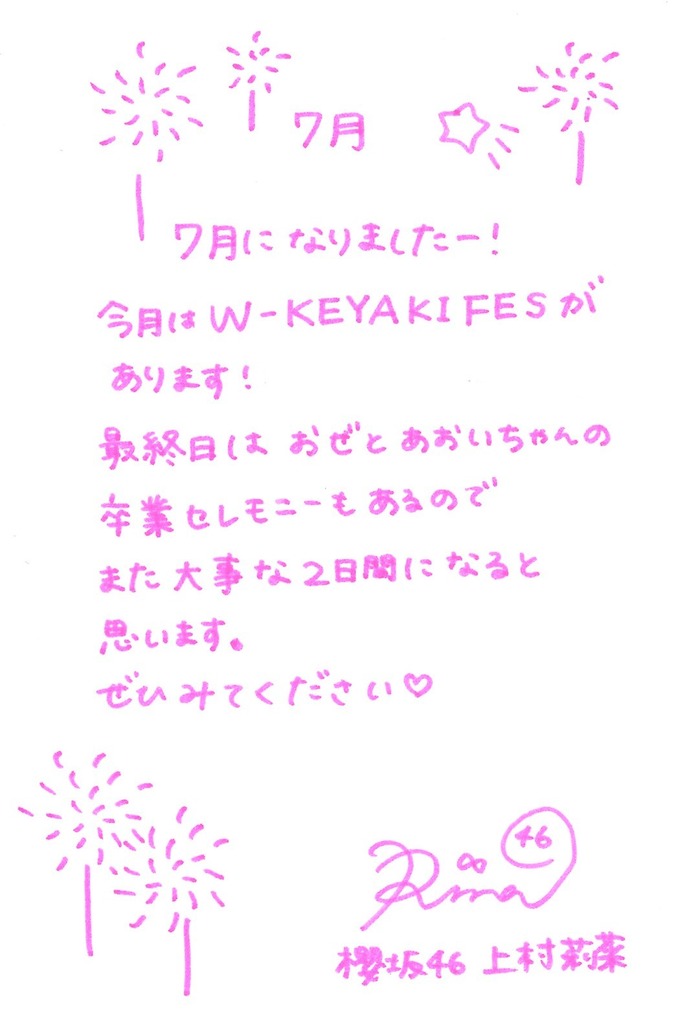 7月
7月になりましたー!
今月はW-KEYAKI FESが
あります!
最終日は おぜと あおいちゃんの
卒業セレモニーもあるので
また大事な2日間になると
思います。
ぜひみてください♡
46
Rina
櫻坂46 上村莉菜